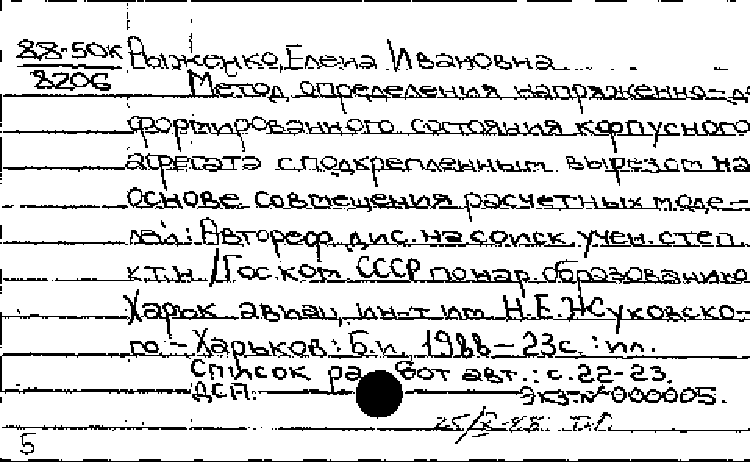 88-50к Рыженко, Елена Ивановна
8206 Метод определения напряженно-де
формированного состояния корпусного
агрегата с подкрепленным вырезом на
основе совмещения расчетных моде-
лей: Автореф. дис. на соиск. учен. степ.
к.т.н. /Гос. ком. СССР по нар. образованию
Харьк. авиац. ин-т им. Н.Е. Жуковско-
го.- Харьков: Б.и. 1988 – 23с.: ил.
Список работ авт.: с. 22-23.
ДСП. Экз. № 000005.
5